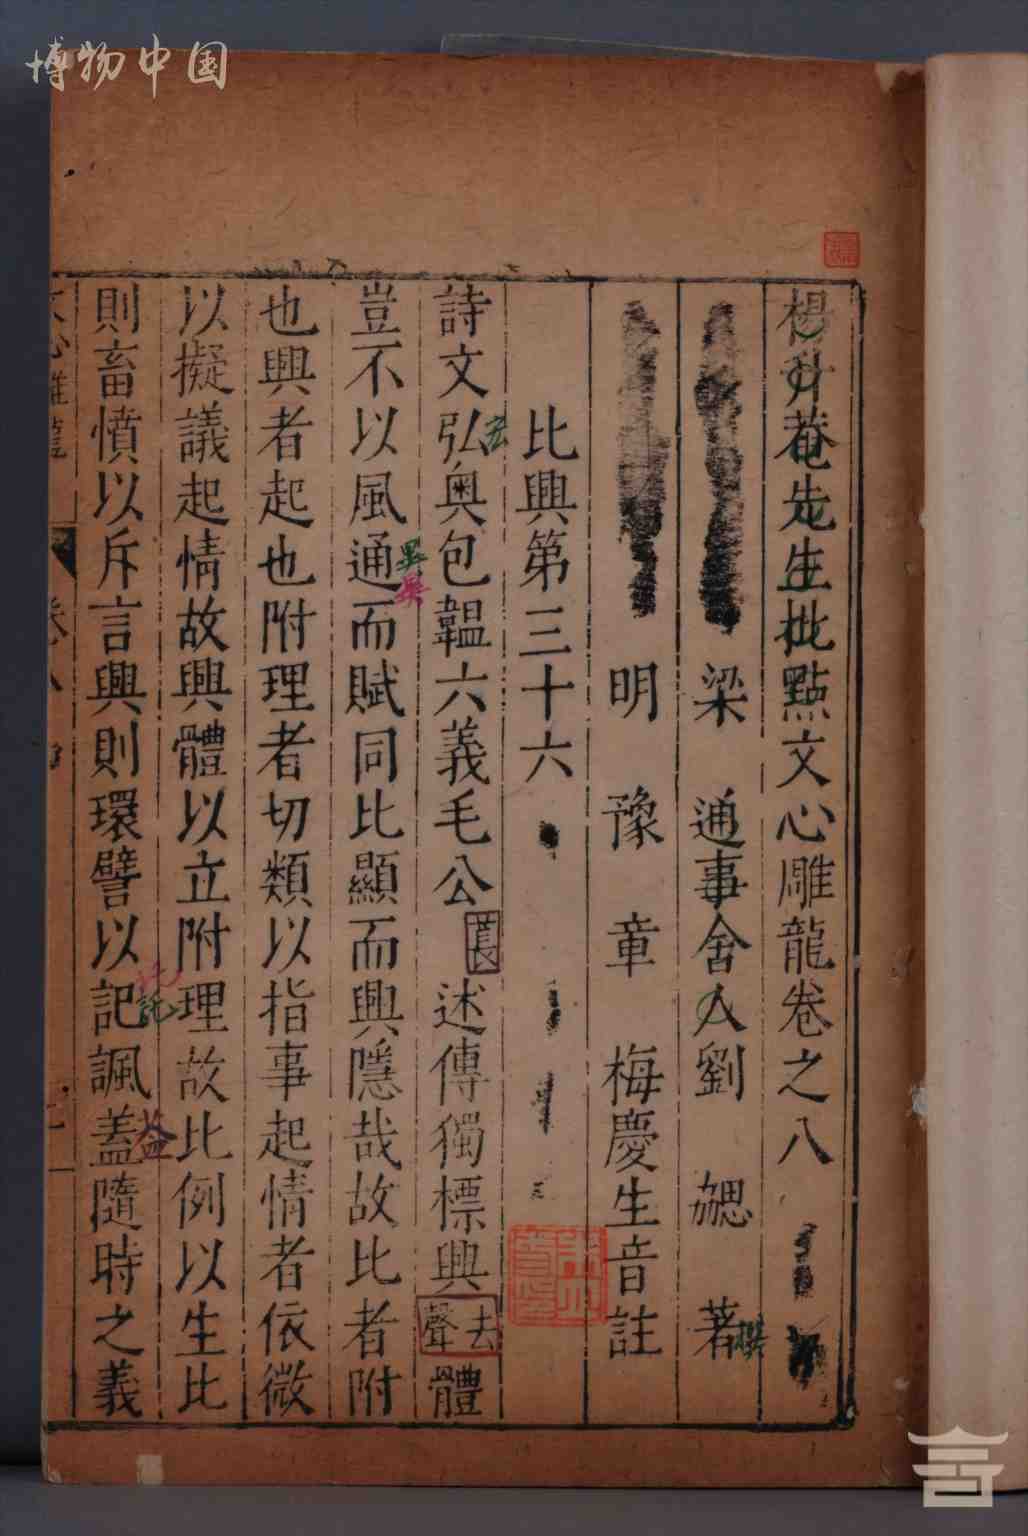 博物中国
楊升菴先生批點文心雕龍卷之八
梁 通事舍人劉 勰 著
撰
明 豫 章 梅慶生音註
比興第三十六
詩文弘奥包韞六義毛公萇述傳獨標興去聲體
宏
豈不以風通而賦同比顯而興隱哉故比者附
異
也興者起也附理者切類以指事起情者依微
以擬議起情故興體以立附理故比例以生比
則畜憤以斥言興則環譬以記諷蓋隨時之義
託